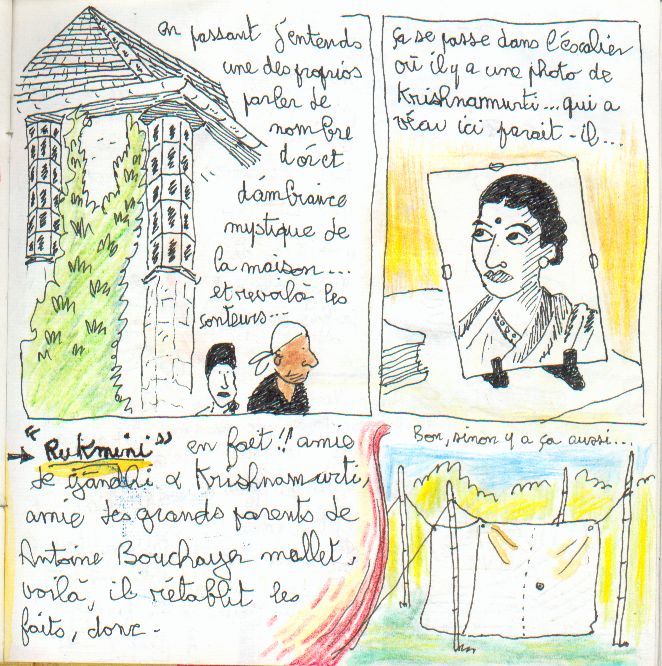 en passant j'entends
une des proprios
parler de
nombre
d'or et
d'ambiance
mystique de
la maison...
et revoilà les
conteurs...
ça se passe dans l'escalier
où il y a une photo de
Krishnamurti... qui a
vécu ici parait-il...
"Rukmini" en fait!! amie
de gandhi & Krishnamurti,
amie des grands parents de
Antoine Bouchayer mallet,
voilà, il rétablit les
faits, donc.
Bon, sinon y a ça aussi...